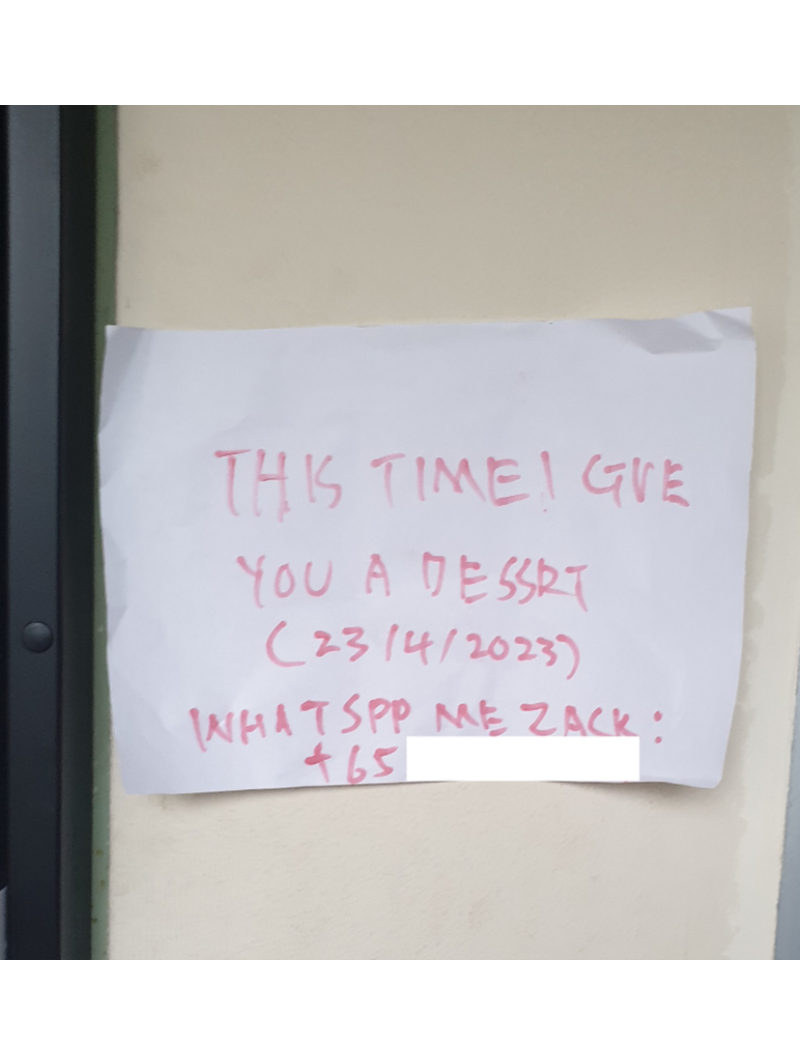 THIS TIME I GVE
YOU A DESSRT
(23/4/2023)
WHATSPP ME ZACK:
+65